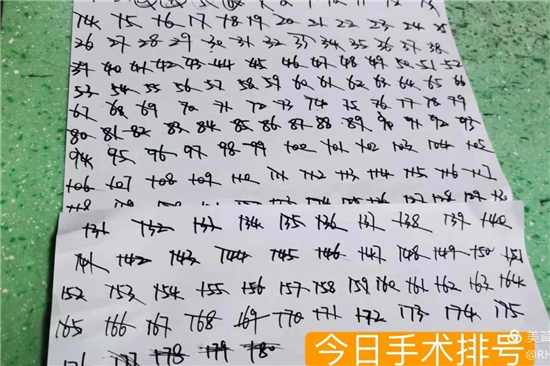 14 15 16 17 18 19 20 21 22 23 24 25
26 27 28 29 30 31 32 33 34 35 36 37 38
39 40 41 42 43 44 45 46 47 48 49 50 51 52
53 54 55 56 57 58 59 60 61 62 63 64 65 66
67 68 69 70 71 72 73 74 75 76 77 78 79
80 81 82 83 84 85 86 87 88 89 90 91 92 93
94 95 96 97 98 99 100 101 102 103 104 105
106 107 108 109 110 111 112 113 114 115 116 117
131 132 133 134 135 136 137 138 139 140
141 142 143 144 145 146 147 148 149 150 151
152 153 154 155 156 157 158 159 160 161 162 163 164
165 166 167 168 169 170 171 172 173 174 175
177 178 179 180
今日手术排号
美篇